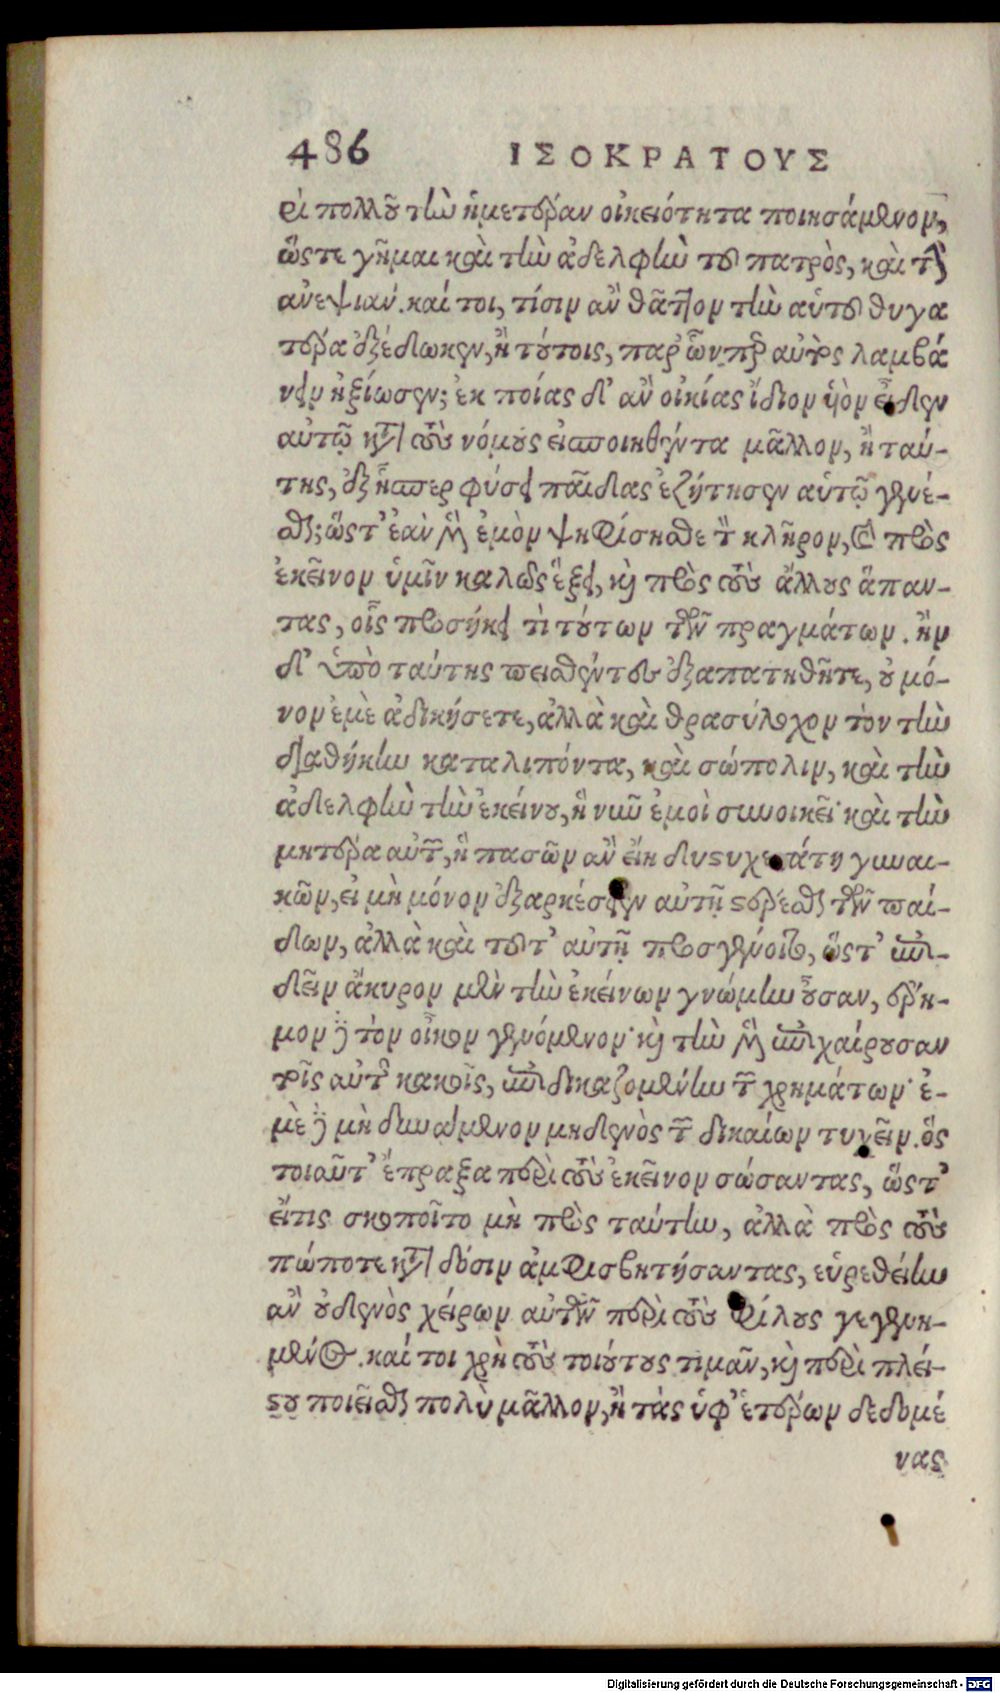 486 ΙΣΟΚΡΑΤΟΥΣ
ρὶ πολλοῦ τὴν ἡμετέραν οἰκειότητα ποιησάμενον,
ὥστε γῆμαι καὶ τὴν ἀδελφὴν τοῦ πατρὸς, καὶ τὴν
ἀνεψιάν. καί τοι, τίσιν ἂν θᾶττον τὴν αὑτοῦ θυγα
τέρα ἐξέδωκεν, ἢ τούτοις, παρ' ὧνπερ αὐτὸς λαμβά
νειν ἠξίωσεν; ἐκ ποίας δ' ἂν οἰκίας ἴδιον ὑὸν εἶδεν
αὐτῷ κατὰ τοὺς νόμους εἰσποιηθέντα μᾶλλον, ἢ ταύ-
της, ἐξ ἧσπερ φύσει παῖδας ἐζήτησεν αὑτῷ γενέ-
σθαι; ὥστ' ἐὰν μὲν ἐμὸν ψηφίσησθε τὸν κλῆρον, καὶ πρὸς
ἐκεῖνον ὑμῖν καλῶς ἕξει, καὶ πρὸς τοὺς ἄλλους ἅπαν-
τας, οἷς προσήκει τὶ τούτων τῶν πραγμάτων. ἢν
δ' ὑπὸ ταύτης πεισθέντες ἐξαπατηθῆτε, οὐ μό-
νον ἐμὲ ἀδικήσετε, ἀλλὰ καὶ θρασύλοχον τὸν τὴν
διαθήκην καταλιπόντα, καὶ σώπολιν, καὶ τὴν
ἀδελφὴν τὴν ἐκείνου, ἣ νῦν ἐμοὶ συνοικεῖ· καὶ τὴν
μητέρα αὐτῶν, ἣ πασῶν ἂν εἴη δυστυχεστάτη γυναι-
κῶν, εἰ μὴ μόνον ἐξαρκέσειεν αὐτῇ στέρεσθαι τῶν παί-
δων, ἀλλὰ καὶ τοῦτ' αὐτῇ προσγένοιτο, ὥστ' ἐπι-
δεῖν ἄκυρον μὲν τὴν ἐκείνων γνώμην οὖσαν, ἔρη-
μον δὲ τὸν οἶκον γενόμενον· καὶ τὴν μὲν ἐπιχαίρουσαν
τοῖς αὐτῶν κακοῖς, ἐπιδικαζομένην τῶν χρημάτων· ἐ-
μὲ δὲ μὴ δυνάμενον μηδενὸς τῶν δικαίων τυχεῖν. ὃς
τοιαῦτ' ἔπραξα περὶ τοὺς ἐκεῖνον σώσαντας, ὥστ'
εἴτις σκοποῖτο μὴ πρὸς ταύτην, ἀλλὰ πρὸς τοὺς
πώποτε κατὰ δόσιν ἀμφισβητήσαντας, εὑρεθείην
ἂν οὐδενὸς χείρων αὐτῶν περὶ τοὺς φίλους γεγενη-
μένος. καί τοι χρὴ τοὺς τοιούτους τιμᾶν, καὶ περὶ πλεί-
στου ποιεῖσθαι πολὺ μᾶλλον, ἢ τὰς ὑφ' ἑτέρων δεδομέ
νας
Digitalisierung gefördert durch die Deutsche Forschungsgemeinschaft - DFG